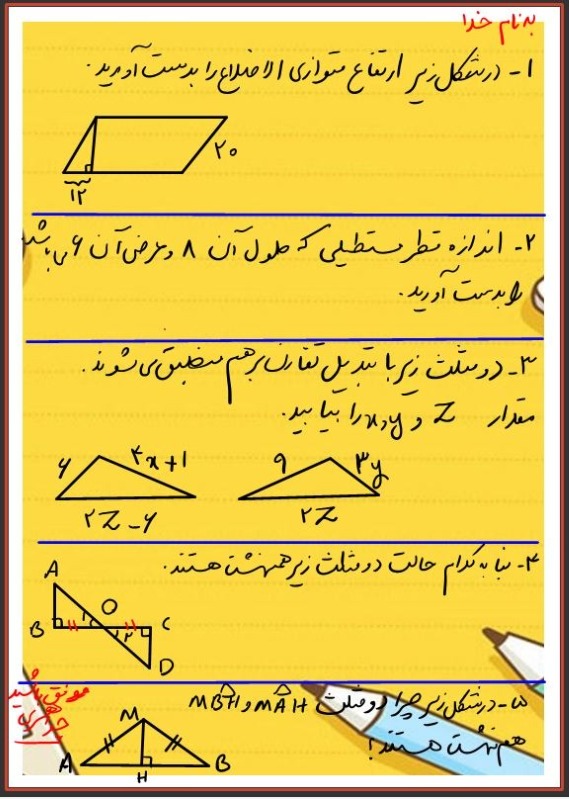 به نام خدا
۱- در شکل زیر ارتفاع متوازی الاضلاع را بدست آورید.
۲۰
۱۲
۲- اندازه قطر مستطیلی که طول آن ۸ و عرض آن ۶ می باشد
را بدست آورید.
۳- دو مثلث زیر با تبدیل تقارن بر هم منطبق می شوند.
مقدار Z و y و x را بیابید.
۶ ۴x+۱ ۹ ۳y
۲Z-۶ ۲Z
۴- بنا به کدام حالت دو مثلث زیر همنهشت هستند.
A
O
B ۱ ۲ C
D
۵- در شکل زیر چرا دو مثلث MAH و MBH
هم نهشت هستند؟
موفق باشید
M
A H B